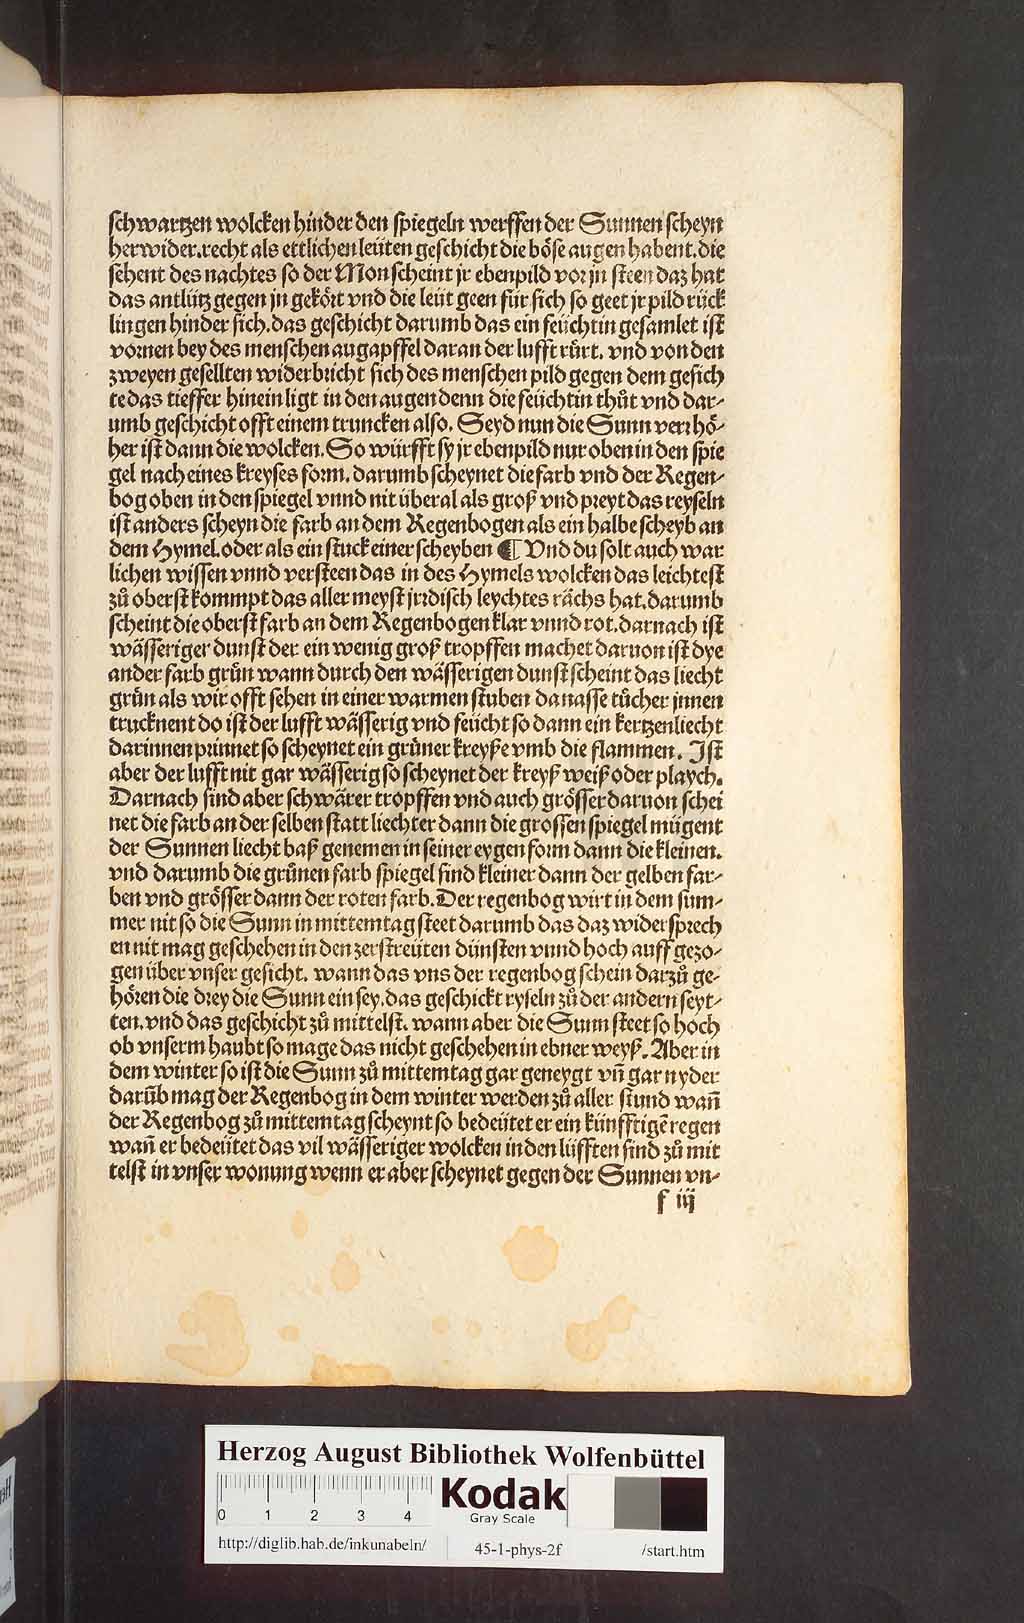 schwartzen wolcken hinder den spiegeln werffen der Sunnen scheyn
herwider.recht als ettlichen leüten geschicht die böse augen habent.die
sehent des nachtes so der Mon scheint jr ebenpild vor jn steen daz hat
das antlütz gegen jn gekört vnd die leüt geen für sich so geet jr pild rück
lingen hinder sich.das geschicht darumb das ein feüchtin gesamlet ist
vornen bey des menschen augapffel daran der lufft rürt. vnd von den
zweyen gesellten widerbricht sich des menschen pild gegen dem gesich
te das tieffer hinein ligt in den augen denn die feüchtin thůt vnd dar-
umb geschicht offt einem truncken also. Seyd nun die Sunn verr hö-
her ist dann die wolcken. So würfft sy jr ebenpild nur oben in den spie
gel nach eines kreyses form. darumb scheynet die farb vnd der Regen-
bog oben in den spiegel vnnd nit überal als groß vnd preyt das reyseln
ist anders scheyn die farb an dem Regenbogen als ein halbe scheyb an
dem Hymel.oder als ein stuck einer scheyben ¶ Vnd du solt auch war
lichen wissen vnnd versteen das in des Hymels wolcken das leichtest
zů oberst kommpt das aller meyst jrdisch leychtes rächs hat.darumb
scheint die oberst farb an dem Regenbogen klar vnnd rot.darnach ist
wässeriger dunst der ein wenig groß tropffen machet daruon ist dye
ander farb grün wann durch den wässerigen dunst scheint das liecht
grün als wir offt sehen in einer warmen stuben da nasse tücher jnnen
trucknent do ist der lufft wässerig vnd feücht so dann ein kertzenliecht
darinnen prinnet so scheynet ein grüner kreyße vmb die flammen. Ist
aber der lufft nit gar wässerig so scheynet der kreyß weiß oder playch.
Darnach sind aber schwärer tropffen vnd auch grösser daruon schei
net die farb an der selben statt liechter dann die grossen spiegel mügent
der Sunnen liecht baß genemen in seiner eygen form dann die kleinen.
vnd darumb die grünen farb spiegel sind kleiner dann der gelben far-
ben vnd grösser dann der roten farb.Der regenbog wirt in dem sum-
mer nit so die Sunn in mittemtag steet darumb das daz widersprech
en nit mag geschehen in den zerstreüten dünsten vnnd hoch auff gezo-
gen über vnser gesicht. wann das vns der regenbog schein darzů ge-
hören die drey die Sunn ein sey.das geschickt ryseln zů der andern seyt-
ten.vnd das geschicht zů mittelst. wann aber die Sunn steet so hoch
ob vnserm haubt so mage das nicht geschehen in ebner weyß. Aber in
dem winter so ist die Sunn zů mittemtag gar geneygt vn̄ gar nyder
darūb mag der Regenbog in dem winter werden zů aller stund wan̄
der Regenbog zů mittemtag scheynt so bedeütet er ein künfftigē regen
wan̄ er bedeütet das vil wässeriger wolcken in den lüfften sind zů mit
telst in vnser wonung wenn er aber scheynet gegen der Sunnen vn-
f iij
Herzog August Bibliothek Wolfenbüttel
0 1 2 3 4
Kodak
Gray Scale
http://diglib.hab.de/inkunabeln/ 45-1-phys-2f /start.htm